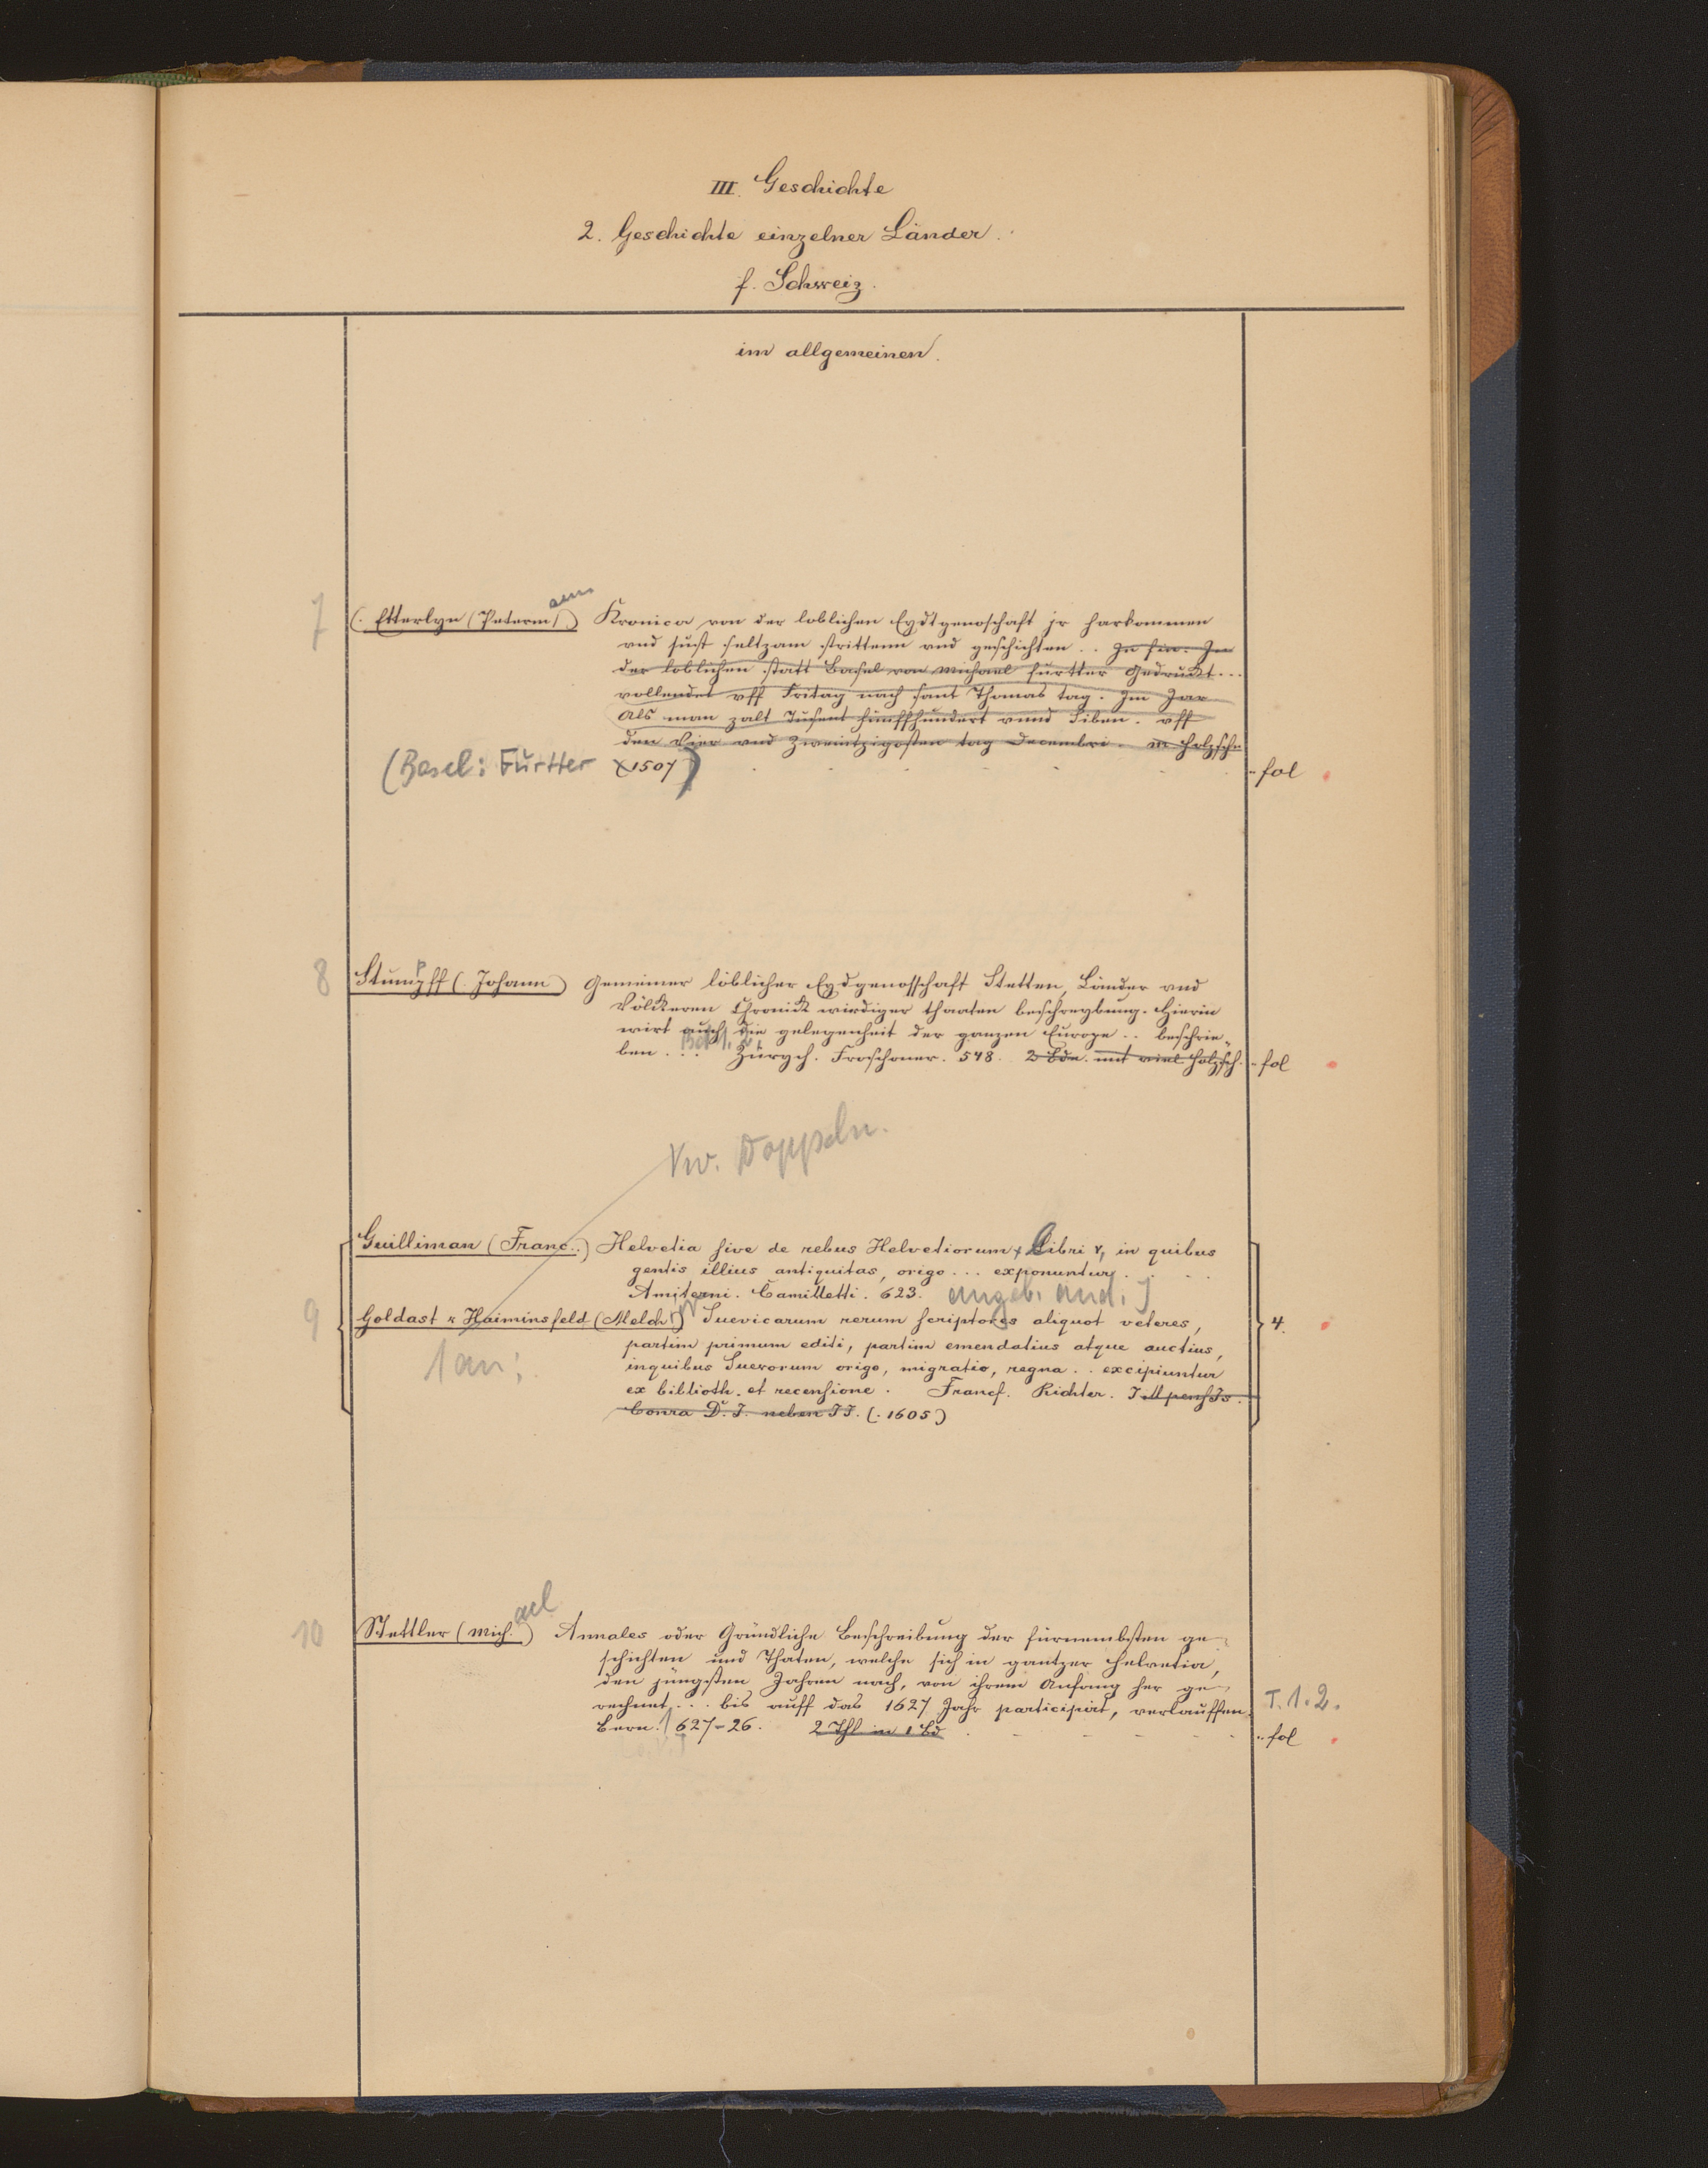 III. Geschichte
2. Geschichte einzelner Länder.
f. Schweiz.
im allgemeinen.
7
(. Etterlyn (Peterm.) ann Kronica von der loblichen Eydtgenoschaft jr harkommen
vnd sust seltzam strittenn vnd geschichten .. In fin: In
der loblichen statt Basel von Michael furtter Gedruckt...
vollendet vff Fritag nach sant Thomas tag. Im Jar
Als man zalt Tusent fünffhundert vnnd Siben. vff
den Vier vnd Zweintzigosten tag Decembri. m. Holzschn
(Basel: Furtter (1507) fol
8
Stumpff (. Johann) Gemeiner löblicher Eydgenosschaft Stetten, Länder vnd
Völckeren Chronick wirdiger thaaten beschreybung. Hierin
wirt auch die gelegenheit der ganzen Europe .. beschrie„
ben ... Bd 1. 2. Zürych. Froschouer. 548. 2 Bde. mit viel Holzsch. fol
Vw. Doppeln.
Guilliman (Franc..) Helvetia sive de rebus Helvetiorum Libri V, in quibus
gentis illius antiquitas, origo ... exponuntur.
Amiterni. Camilletti. 623. angeb. and.]
9
Goldast v Haiminsfeld (Melch.) Suevicarum rerum scriptores aliquot veteres, 4.
partim primum editi, partim emendatius atque auctius,
1 an:
inquibus Suevorum origo, migratio, regna .. excipiuntur
ex biblioth. et recensione. Francf. Richter.
(. 1605)
10
Stettler (Mich.) ael Annales oder Gründliche Beschreibung der fürnembsten ge„
schichten und Thaten, welche sich in gantzer Helvetia,
den jüngsten Jahren nach, von ihrem Anfang her ge„
rechnet ... bis auff das 1627 Jahr participirt, verlauffen. T. 1. 2.
Bern. 627-26. 2 Thl in 1 Bd fol